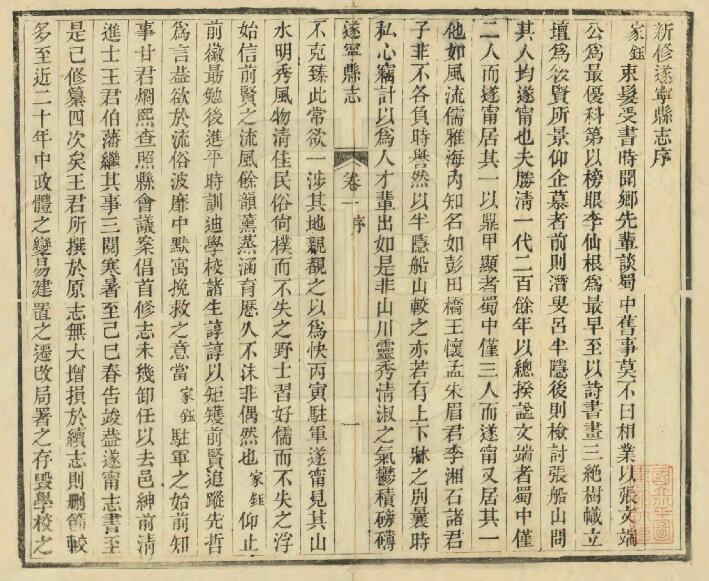 新修遂寧縣志序
家鈺束髮受書時聞鄉先輩談蜀中舊事莫不曰相業以張文端
公爲最優科第以榜眼李仙根爲最早至以詩書畫三絶樹幟立
壇爲欲賢所景仰企慕者前則潛叟呂半隱後則檢討張船山問
其人均遂甯也夫勝清一代二百餘年以總揆諡文端者蜀中僅
二人而遂甯居其一以鼎甲顯者蜀中僅三人而遂甯又居其一
他如風流儒雅海內知名如彭田橋王懷孟朱眉君李湘石諸君
子非不各負時譽然以半隱船山較之亦若有上下牀之別曩時
私心竊計以爲人才輩出如是非山川靈秀清淑之氣鬱積磅礴
遂寧縣志 卷一 序 一
不克臻此常欲一涉其地親覩之以爲快丙寅駐軍遂甯見其山
水明秀風物清佳民俗尙樸而不失之野士習好儒而不失之浮
始信前賢之流風餘韻薰蒸涵育歷久不沬非偶然也家鈺仰止
前徽勗勉後進平時訓迪學校諸生諄諄以矩矱前賢追蹤先哲
爲言葢欲於流俗波靡中默寓挽救之意當家鈺駐軍之始前知
事甘君燜熙查照縣會議案倡首修志未幾卸任以去邑紳前清
進士王君伯藩繼其事三閱寒暑至己巳春告竣葢遂甯志書至
是已修纂四次矣王君所撰於原志無大增損於續志則刪節較
多至近二十年中政體之變易建置之遷改局署之存毀學校之